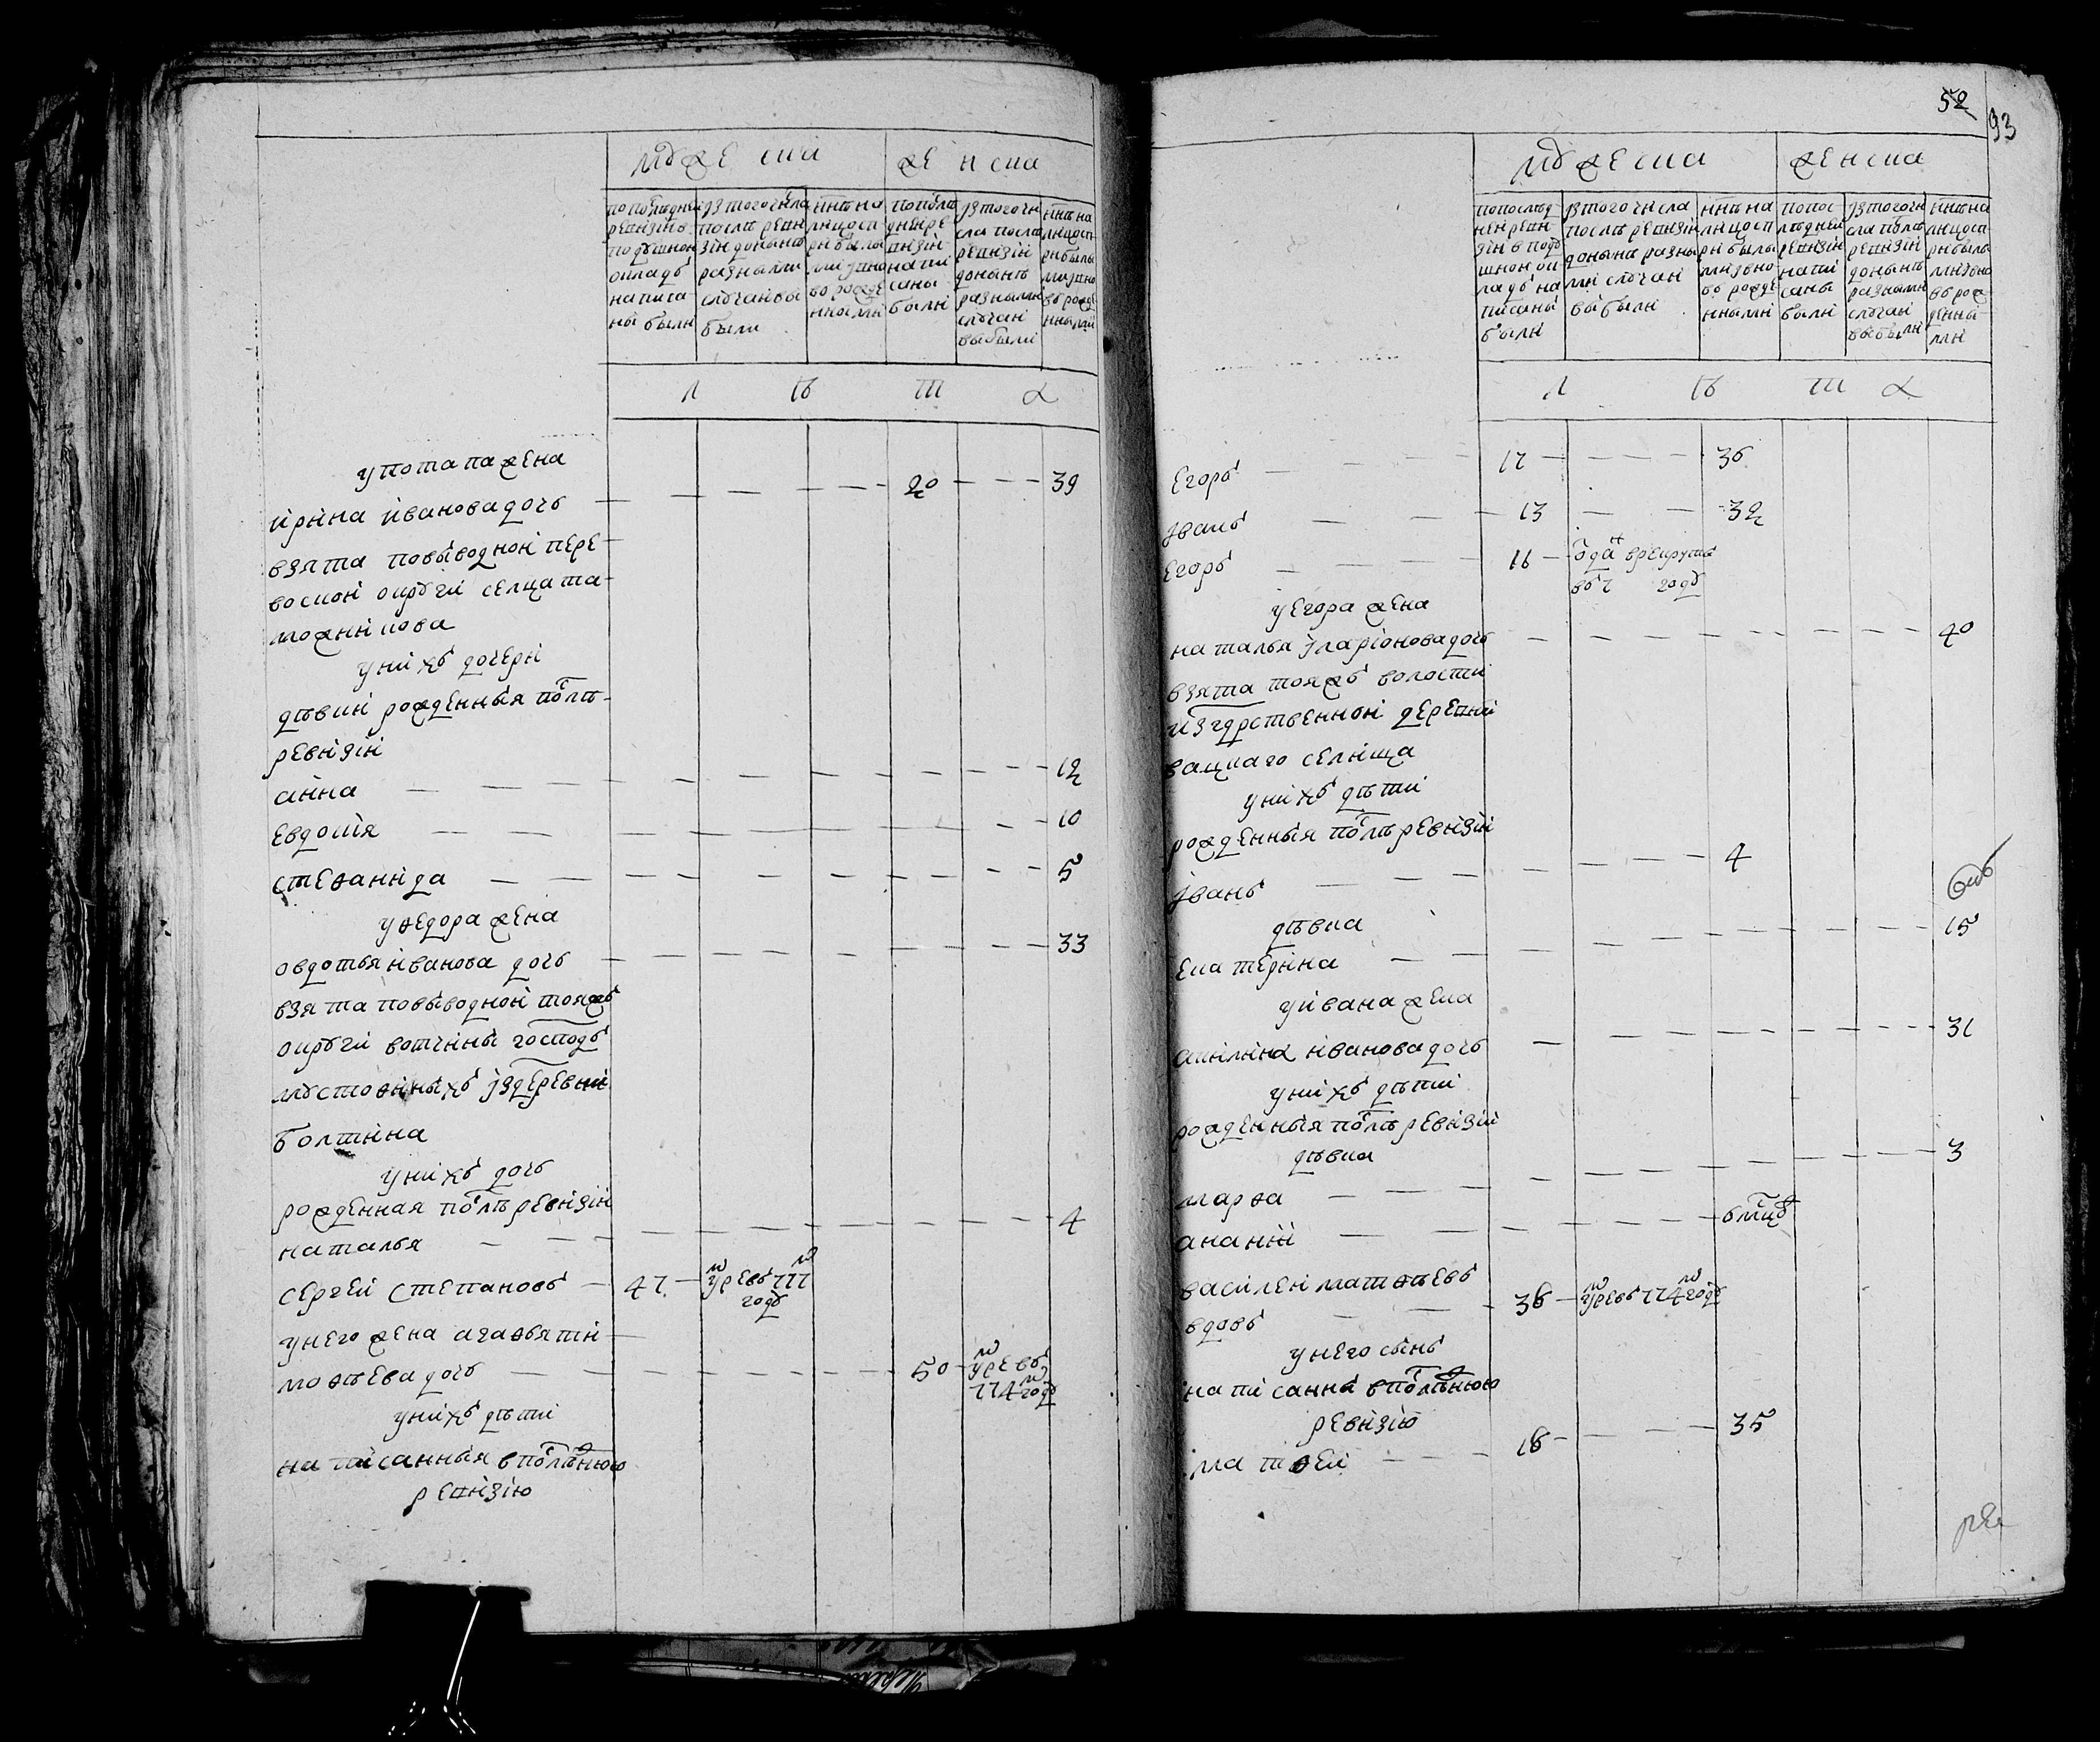 мужеска женска
попослѣдней ревизiи в подушном окладѣ написаны были
изтого числа послѣ ревизiи доныне разными случаи выбыли
ннѣ налицо с прибылыми и вновь рожденными
попослѣдней ревизiи написаны были
изтого числа послѣ ревизiи доныне разными случаи выбыли
ннѣ налицо с прибылыми и вновь рожденными
л ѣ т а
употапа жена
ирина иванова дочь — 20 — 39
взята повыводной пере
воской округи селца та
можникова
унихъ дочери
дѣвки рожденныя послѣ
ревизiи
анна — 12
евдокiя — 10
стеѳанида — 5
уѳедора жена
овдотья иванова дочь — 33
взята повыводной тояжъ
округи вотчины господъ
мустоѳиныхъ издеревни
болтина
унихъ дочь
рожденная послѣ ревизiи
наталья — 4
сергеи степановъ — 47 — умре въ 777м
году
унего жена агаѳья ти
моѳѣева дочь — 50 — умре въ
774м году
унихъ дѣти
написанныя в послѣднюю
ревизiю
52
93
мужеска женска
попослѣдней ревизiи в подушном окладѣ написаны были
изтого числа послѣ ревизiи доныне разными случаи выбыли
ннѣ налицо с прибылыми и вновь рожденными
попослѣдней ревизiи написаны были
изтого числа послѣ ревизiи доныне разными случаи выбыли
ннѣ налицо с прибылыми и вновь рожденными
л ѣ т а
егоръ — 17 — 36
иванъ — 13 — 32
егоръ — 16 — отдан врекруты
въ году
уегора жена
наталья iларiонова дочь — 40
взята тояжъ волости
изгдрственной деревни
вацкаго селища
унихъ дѣти
рожденныя послѣ ревизiи
иванъ — 4
дѣвка
екатерина — 15
уивана жена
акилина иванова дочь — 31
унихъ дѣти
рожденныя послѣ ревизiи
дѣвка
марѳа — 3
ананiй — 6 мцъ
василеи матѳѣевъ
вдовъ — 36 — умре въ 774м году
унего сынъ
написанны в послѣднюю
ревизiю
матѳеи — 16 — 35